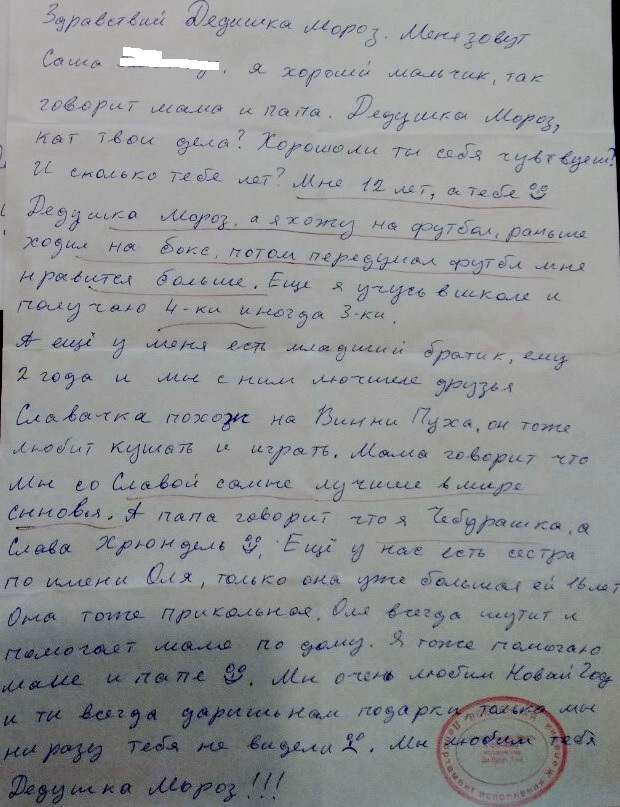 Здравствий Дедишка Мороз. Меня зовут
Саша я хороший мальчик, так
говорит мама и папа. Дедушка Мороз,
кат твои дела? Хорошоли ты себя чувтвуеш?
И сколько тебе лет? Мне 12 лет, а тебе
Дедушка Мороз, а я хожу на футбол, раньше
ходил на бокс, потом передумал футбл мне
нравится больше. Еще я учусь в школе и
получаю 4-ки иногда 3-ки.
А ещё у меня есть младший братик, ему
2 года и мы с ним лючшие друзья
Славачка похож на Винни Пуха, он тоже
любит кушать и играть. Мама говорит что
мы со Славой самые лучшие в мире
сыновья. А папа говорит что я Чебурашка, а
Слава Хрюндель. Ещё у нас есть сестра
по имени Оля, только она уже большая ей 16 лет
Она тоже прикольная. Оля всегда шутит и
помогает маме по дому. Я тоже помогаю
маме и папе. Мы очень любим Новый Год
и ты всегда даришь нам подарки только мы
ни разу тебя не видели. Мы любим тебя
Дедушка Мороз!!!
департамент исполнения желаний